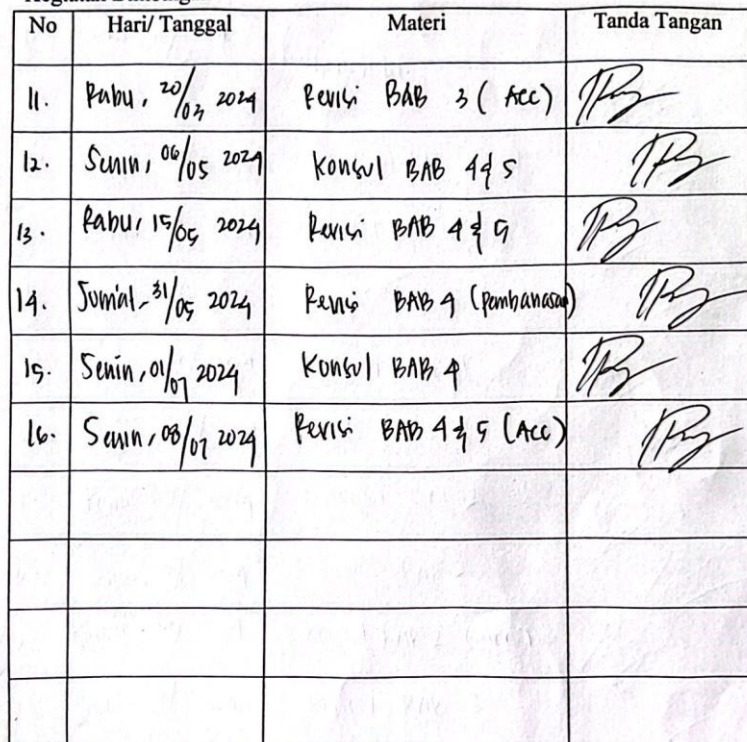 No Hari/ Tanggal Materi Tanda Tangan
11. Rabu, 20/03 2024 Revisi BAB 3 (Acc)
12. Senin, 06/05 2024 Konsul BAB 4 & 5
13. Rabu, 15/05 2024 Revisi BAB 4 & 5
14. Jumat, 31/05 2024 Revisi BAB 4 (pembahasan)
15. Senin, 01/07 2024 Konsul BAB 4
16. Senin, 08/07 2024 Revisi BAB 4 & 5 (Acc)